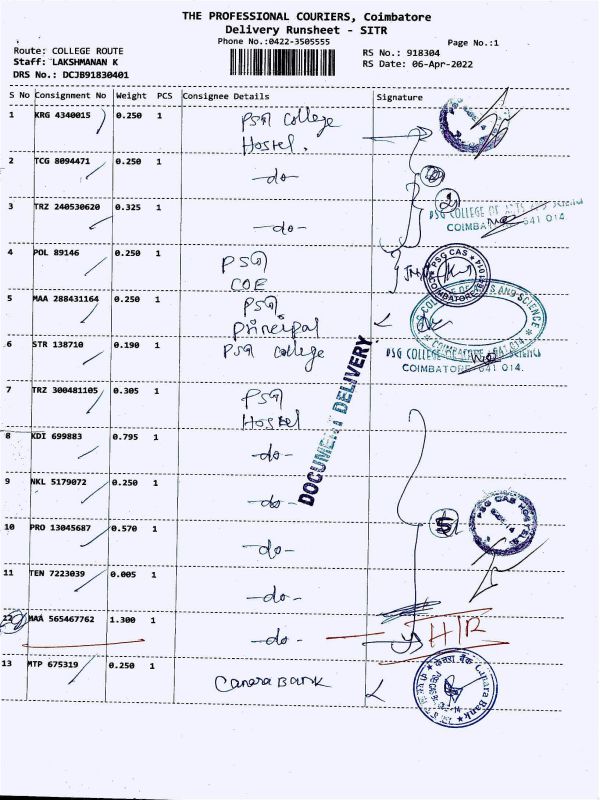 THE PROFESSIONAL COURIERS, Coimbatore
Delivery Runsheet - SITR
Phone No.:0422-3505555
Page No.:1
Route: COLLEGE ROUTE
RS No.: 918304
Staff: LAKSHMANAN K
RS Date: 06-Apr-2022
DRS No.: DCJB91830401
S No Consignment No Weight PCS Consignee Details Signature
1 KRG 4340015 0.250 1 PSG College
Hostel.
2 TCG 8094471 0.250 1 -do-
3 TRZ 240530620 0.325 1 -do-
PSG COLLEGE OF ARTS AND SCIENCE
COIMBATORE 641 014
4 POL 89146 0.250 1 PSG
COE
PSG CAS
COIMBATORE
5 MAA 288431164 0.250 1 PSG
Principal
COLLEGE OF ARTS AND SCIENCE
COIMBATORE 641 014
6 STR 138710 0.190 1 PSG College
PSG COLLEGE
COIMBATORE 641 014.
7 TRZ 300481105 0.305 1 PSG
Hostel
DOCUMENT DELIVERY
8 KDI 699883 0.795 1 -do-
9 NKL 5179072 0.250 1 -do-
5
PSG CAS HOSTELS
10 PRO 13045687 0.570 1 -do-
11 TEN 7223039 0.005 1 -do-
12 MAA 565467762 1.300 1 -do-
13 MTP 675319 0.250 1 Canara Bank
केनरा बैंक Canara Bank